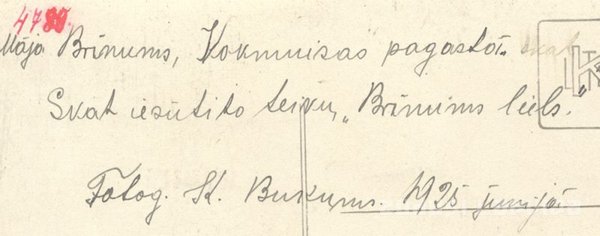 4780.
Māja Brīnums, Kokmuižas pagastā. skat
Skat iesūtīto teiku, „Brīnums liels."
Fotog. K. Bukums. 1925 jūnijā